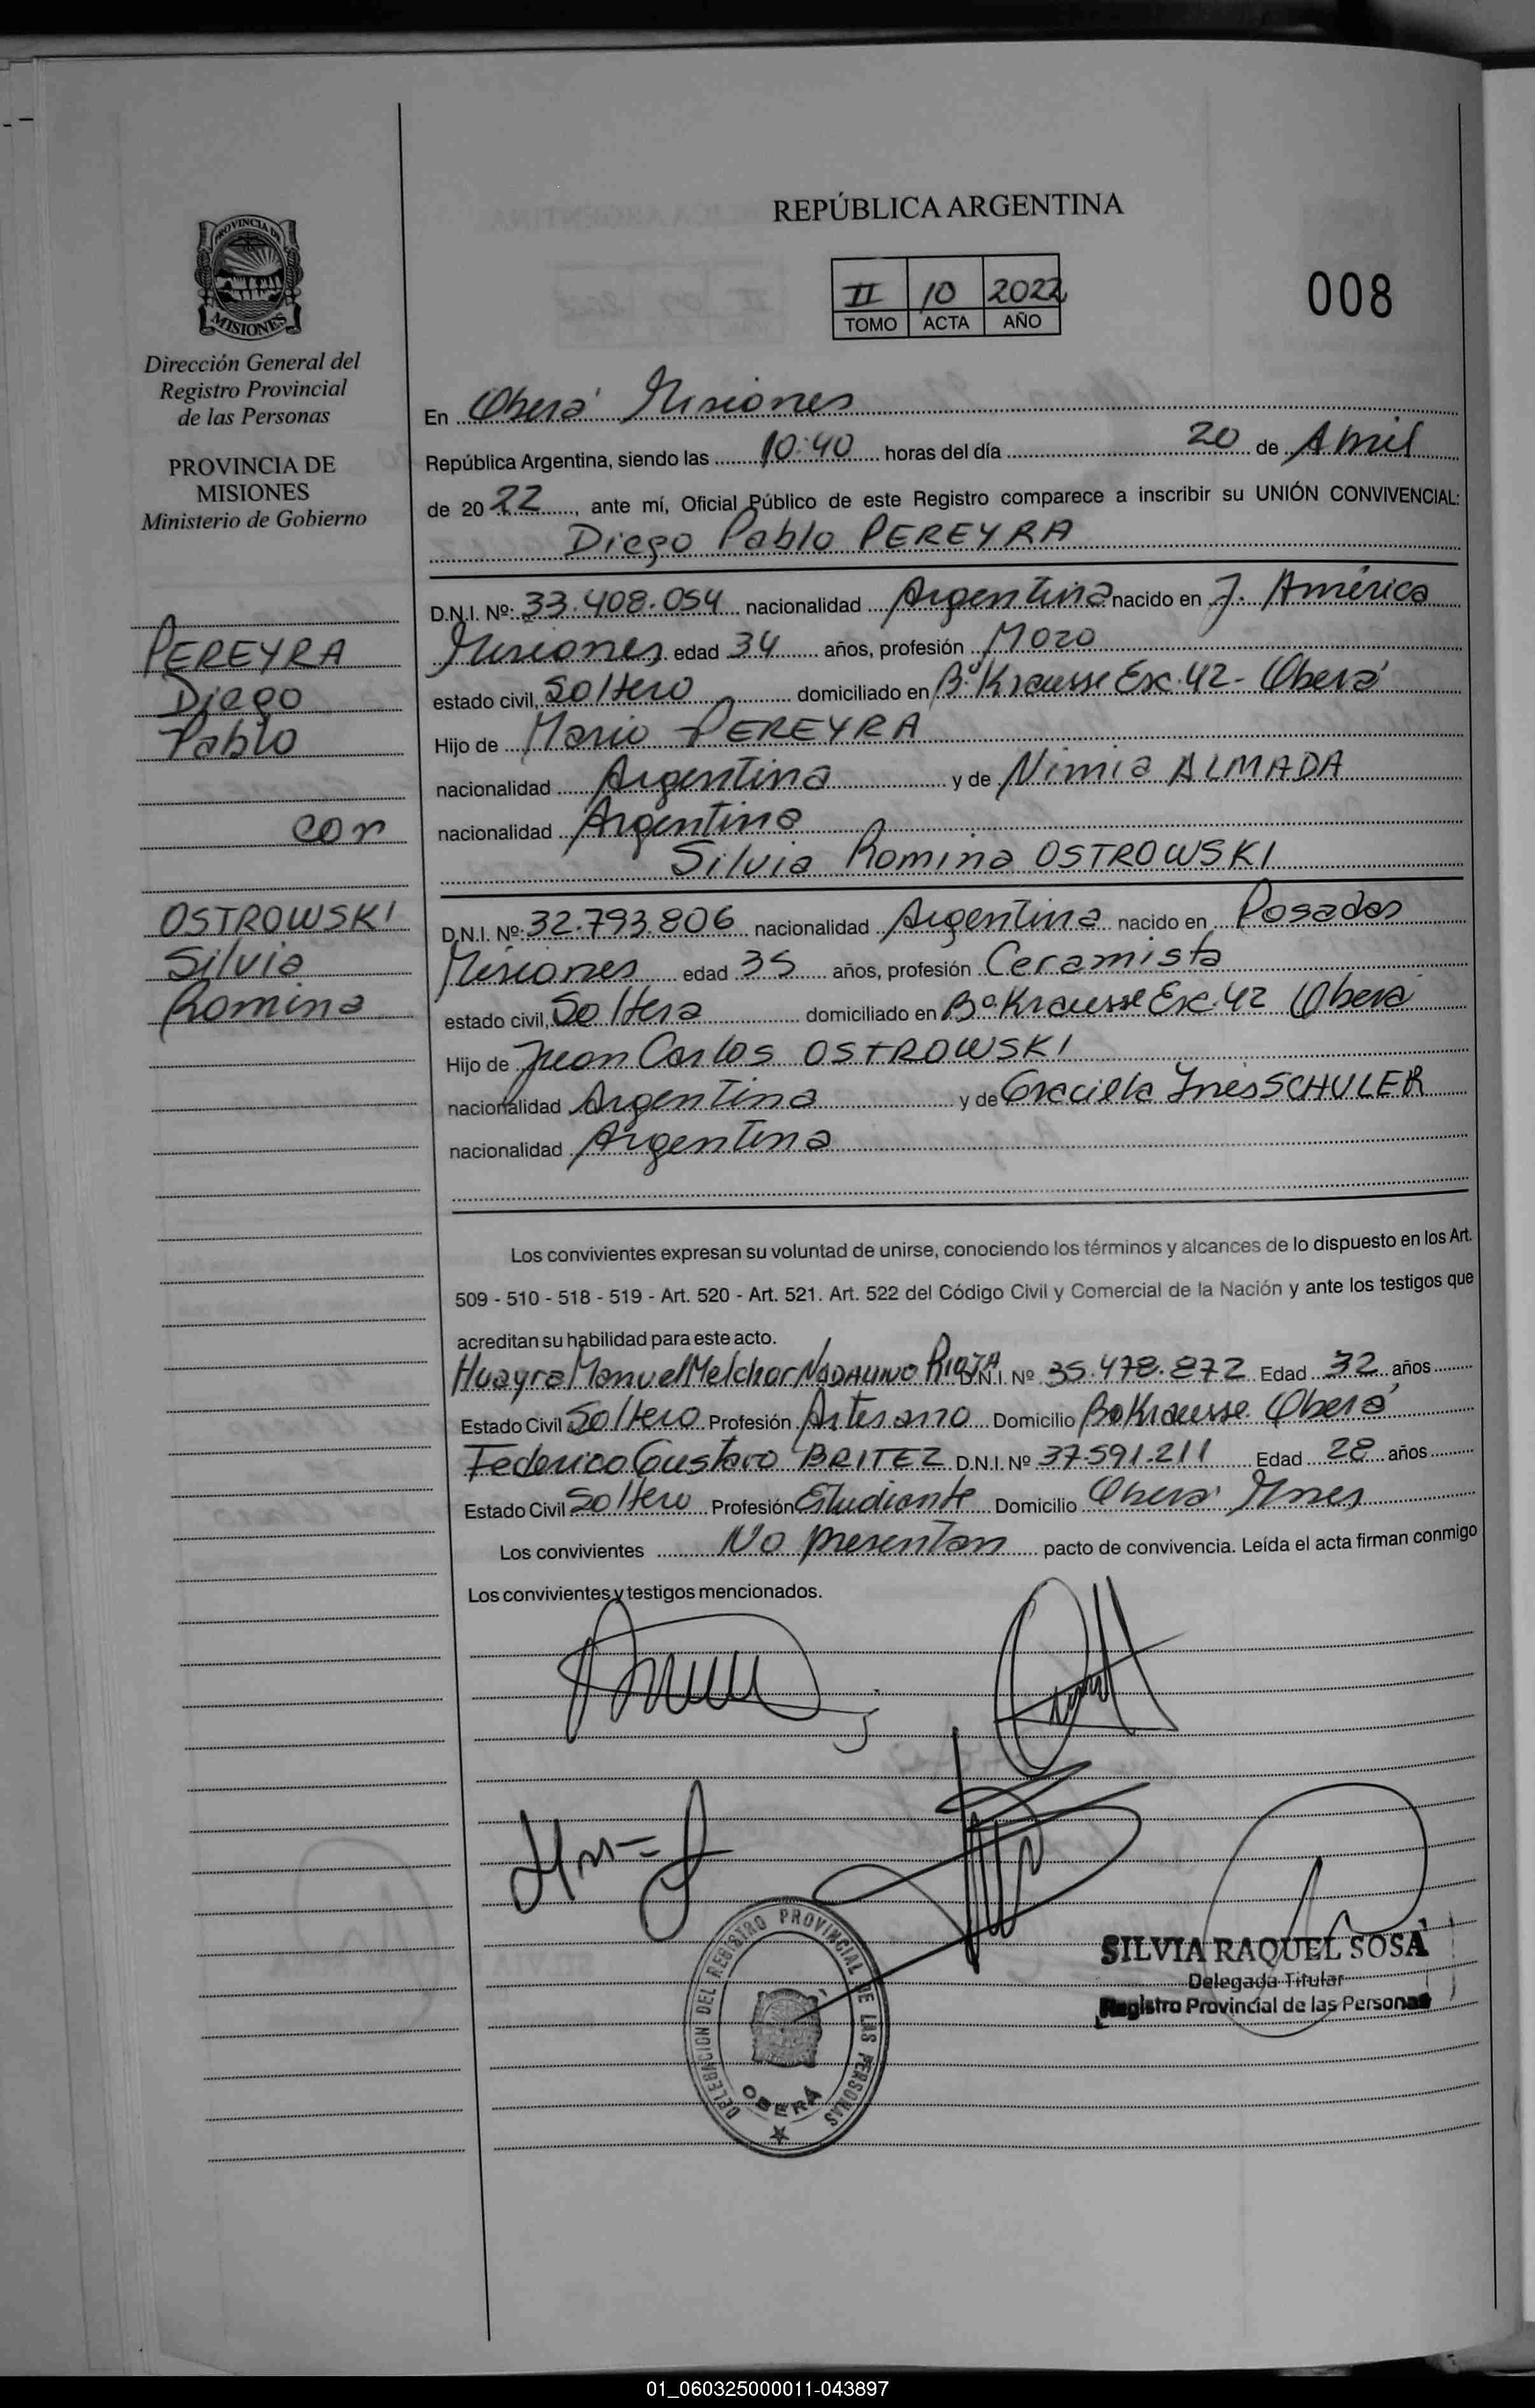 REPÚBLICA ARGENTINA
PROVINCIA DE
MISIONES
Dirección General del
Registro Provincial
de las Personas
PROVINCIA DE
MISIONES
Ministerio de Gobierno
II 10 2022
TOMO ACTA AÑO
008
En Oberá Misiones
República Argentina, siendo las 10:40 horas del día 20 de Abril
de 2022, ante mí, Oficial Público de este Registro comparece a inscribir su UNIÓN CONVIVENCIAL:
Diego Pablo PEREYRA
PEREYRA
Diego
Pablo
con
OSTROWSKI
Silvia
Romina
D.N.I. Nº: 33.408.054 nacionalidad Argentina nacido en J. América
Misiones edad 34 años, profesión Mozo
estado civil, Soltero domiciliado en Bº Krausse Esc. 42 - Oberá
Hijo de Mario PEREYRA
nacionalidad Argentina y de Nimia ALMADA
nacionalidad Argentina
Silvia Romina OSTROWSKI
D.N.I. Nº: 32.793.806 nacionalidad Argentina nacido en Posadas
Misiones edad 35 años, profesión Ceramista
estado civil, Soltera domiciliado en Bº Krausse Esc. 42 Oberá
Hijo de Juan Carlos OSTROWSKI
nacionalidad Argentina y de Graciela Ines SCHULER
nacionalidad Argentina
Los convivientes expresan su voluntad de unirse, conociendo los términos y alcances de lo dispuesto en los Art.
509 - 510 - 518 - 519 - Art. 520 - Art. 521. Art. 522 del Código Civil y Comercial de la Nación y ante los testigos que
acreditan su habilidad para este acto.
Huayra Manuel Melchor NADALINO RIOJA D.N.I. Nº 35.478.872 Edad 32 años
Estado Civil Soltero Profesión Artesano Domicilio Bo Krausse Oberá
Federico Gustavo BRITEZ D.N.I. Nº 37.591.211 Edad 28 años
Estado Civil Soltero Profesión Estudiante Domicilio Oberá Mnes
Los convivientes No presentan pacto de convivencia. Leída el acta firman conmigo
Los convivientes y testigos mencionados.
DELEGACION DEL REGISTRO PROVINCIAL DE LAS PERSONAS
OBERÁ
SILVIA RAQUEL SOSA
Delegada Titular
Registro Provincial de las Personas
01_060325000011-043897